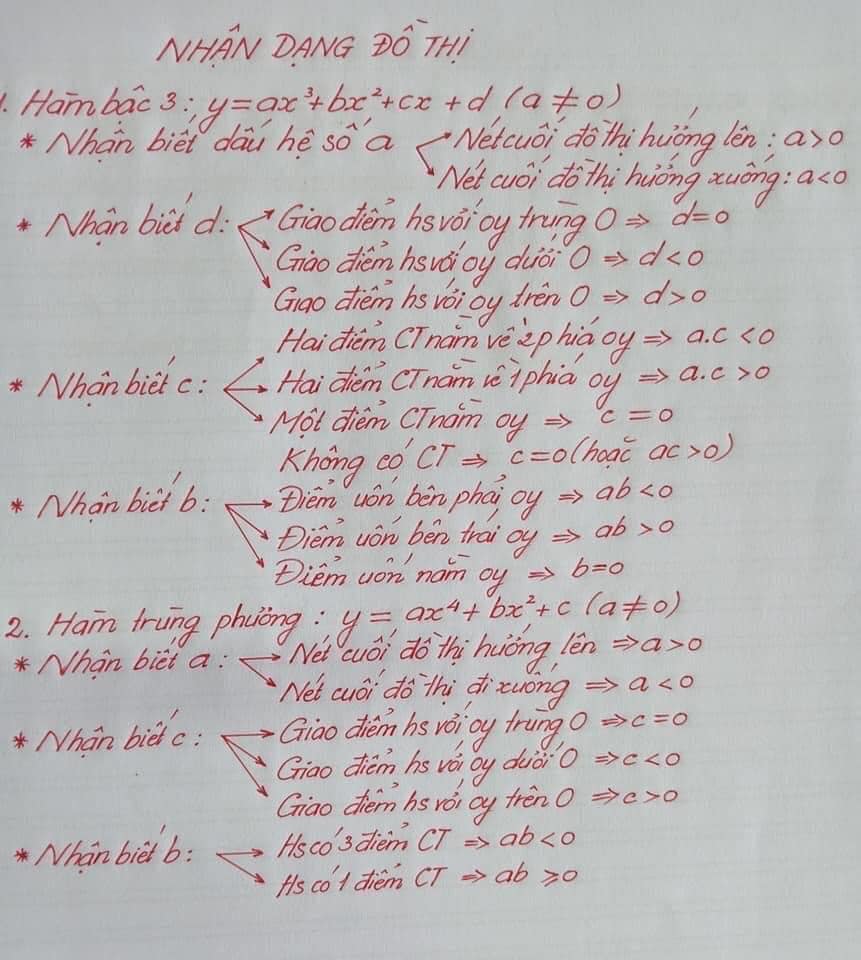 NHẬN DẠNG ĐỒ THỊ
1. Hàm bậc 3: y=ax³+bx²+cx+d (a≠0)
* Nhận biết dấu hệ số a → Nét cuối đồ thị hướng lên: a>0
→ Nét cuối đồ thị hướng xuống: a<0
* Nhận biết d: → Giao điểm hs với oy trùng O ⇒ d=0
→ Giao điểm hs với oy dưới O ⇒ d<0
→ Giao điểm hs với oy trên O ⇒ d>0
Hai điểm CT nằm về 2 phía oy ⇒ a.c <0
* Nhận biết c: → Hai điểm CT nằm về 1 phía oy ⇒ a.c >0
→ Một điểm CT nằm oy ⇒ c=0
Không có CT ⇒ c=0 (hoặc ac>0)
* Nhận biết b: → Điểm uốn bên phải oy ⇒ ab<0
→ Điểm uốn bên trái oy ⇒ ab>0
→ Điểm uốn nằm oy ⇒ b=0
2. Hàm trùng phương: y= ax⁴+bx²+c (a≠0)
* Nhận biết a: → Nét cuối đồ thị hướng lên ⇒ a>0
→ Nét cuối đồ thị đi xuống ⇒ a<0
* Nhận biết c: → Giao điểm hs với oy trùng O ⇒ c=0
→ Giao điểm hs với oy dưới O ⇒ c<0
→ Giao điểm hs với oy trên O ⇒ c>0
* Nhận biết b: → Hs có 3 điểm CT ⇒ ab<0
→ Hs có 1 điểm CT ⇒ ab ⩾0